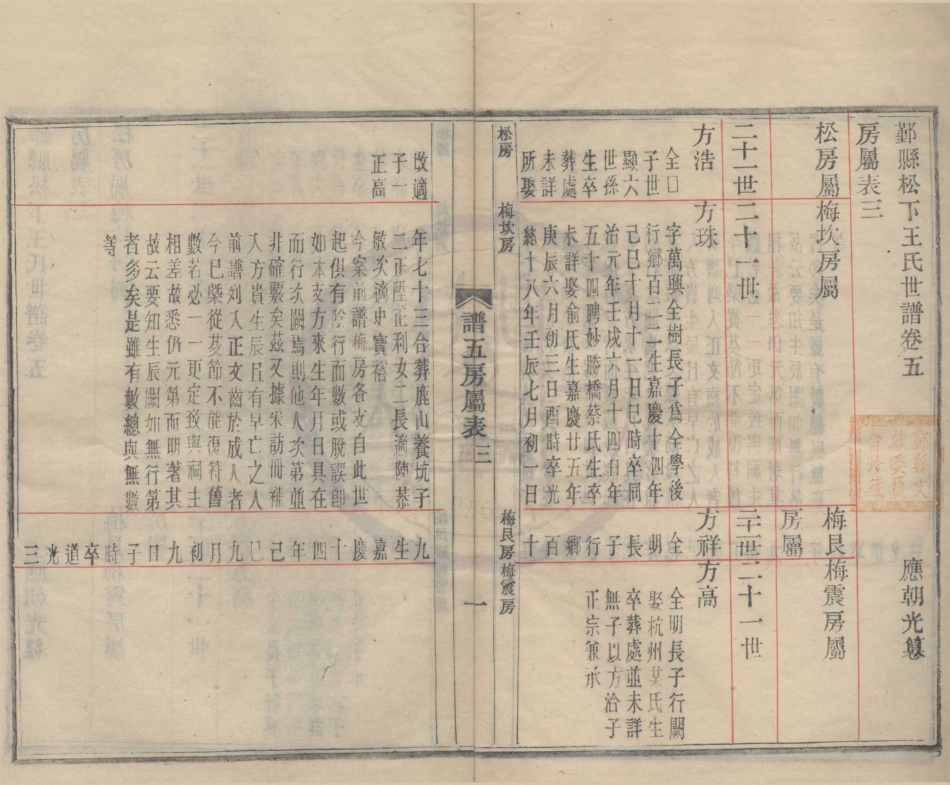 鄞縣松下王氏世譜卷五　應朝光纂
房屬表三
松房屬　梅坎房屬　梅艮房屬　梅震房屬
二十一世　二十一世　二十一世　二十一世
方浩
全口
子世
顯六
世孫
生卒
葬處
未詳
所娶
改適
子一
正高
方珠
字萬興全樹長子為全學後
行鄉百二二生嘉慶十四年
己巳十月十一日巳時卒同
治元年壬戌六月十四日年
五十四聘妙勝橋蔡氏生卒
未詳娶俞氏生嘉慶廿五年
庚辰六月初三日酉時卒光
緒十八年壬辰七月初一日
年七十三合葬鹿山養坑子
二正陞正利女二長適陳恭
敏次適史寶裕
今案前譜梅房各支自此世
起俱有陰行而數或脫誤卽
如本支方來生年月日具在
而行次闕焉則他人次第並
非確數矣茲又據采訪冊補
入方貴生辰且有早亡之人
前譜列入正文齒於成人者
今已槩從芟節不能復符舊
數若必一一更定致與祠主
相差故悉仍元第而明著其
故云要知生辰闕如無行第
者多矣是雖有數總與無數
等
方祥
全明長子行鄉百十九生嘉慶十四年己巳九月初九日子時卒道光三
方高
全明長子行闕
娶杭州某氏生
卒葬處並未詳
無子以方治子
正宗兼承
松房　梅坎房　梅艮房梅震房
譜五房屬表三　一